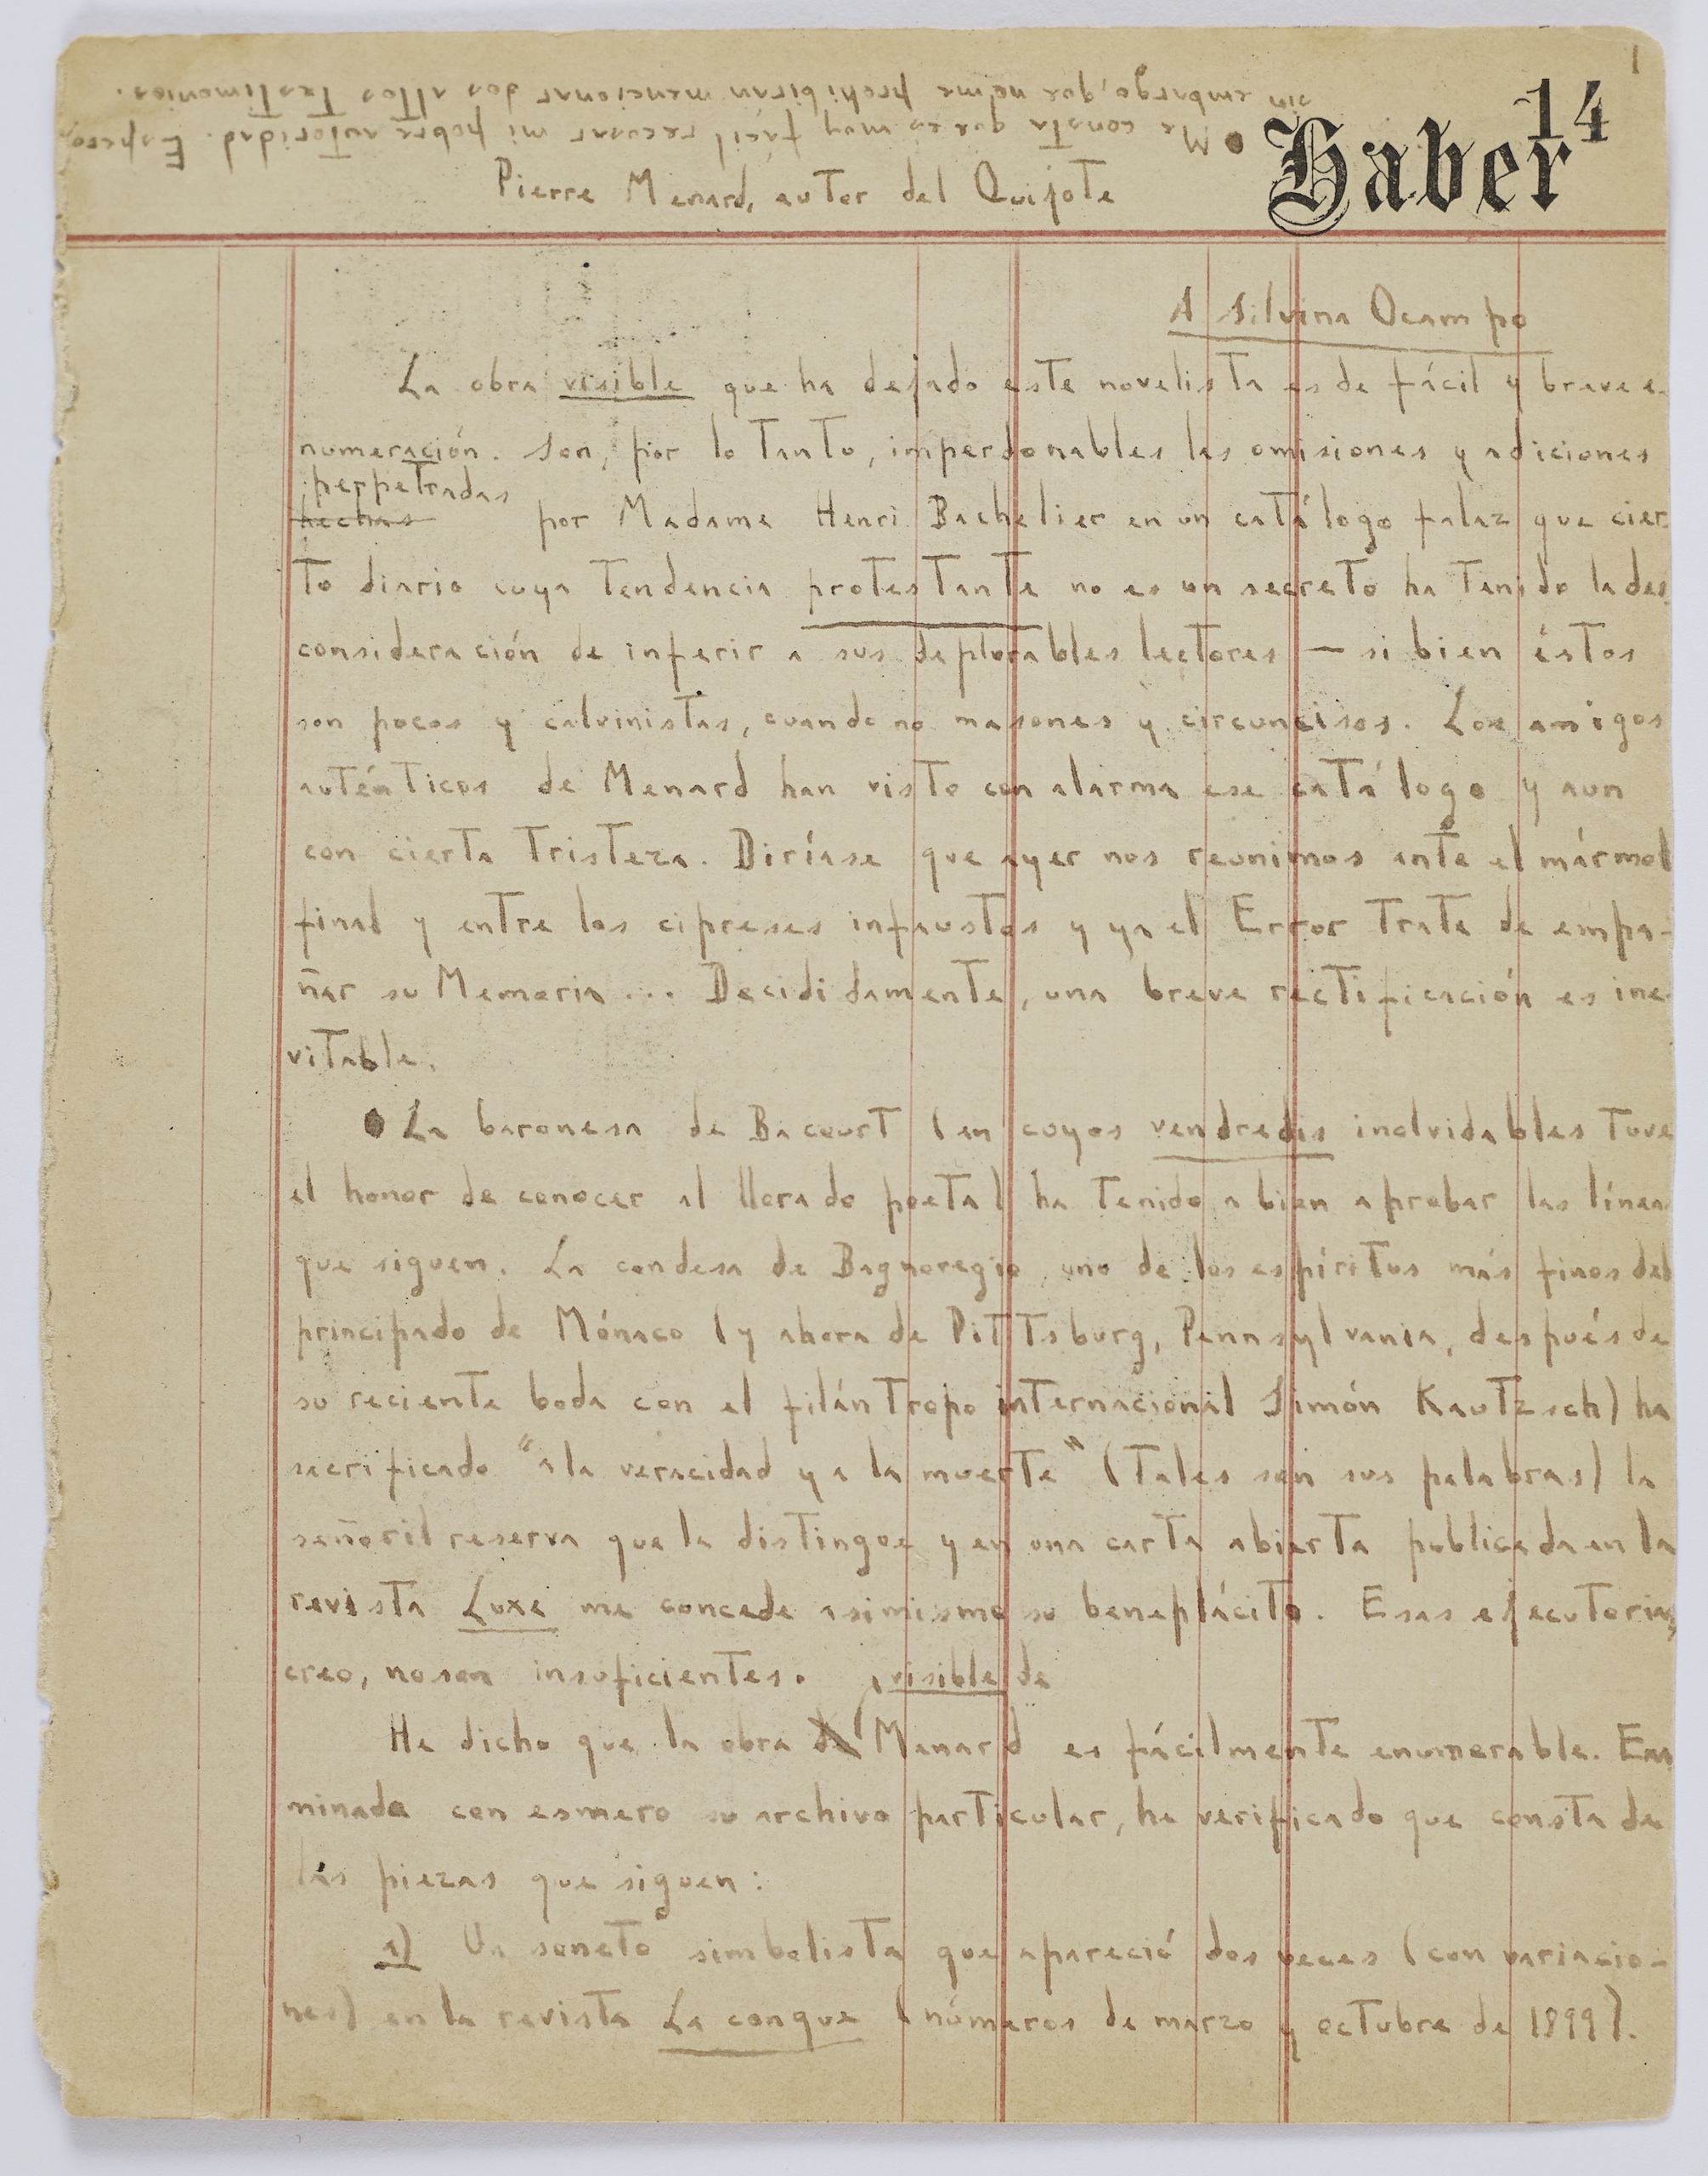 1
14
Haber
● Me consta que es muy fácil recusar mi pobre autoridad. Espero,
sin embargo, que no me prohibirán mencionar dos altos testimonios.
Pierre Menard, autor del Quijote
A Silvina Ocampo
La obra visible que ha dejado este novelista es de fácil y breve e-
numeración. Son, por lo tanto, imperdonables las omisiones y adiciones
perpetradas
hechas por Madame Henri Bachelier en un catálogo falaz que cier-
to diario cuya tendencia protestante no es un secreto ha tenido la des-
consideración de inferir a sus deplorables lectores — si bien éstos
son pocos y calvinistas, cuando no masones y circuncisos. Los amigos
auténticos de Menard han visto con alarma ese catálogo y aun
con cierta tristeza. Diríase que ayer nos reunimos ante el mármol
final y entre los cipreses infaustos y ya el Error trata de empa-
ñar su Memoria... Decididamente, una breve rectificación es ine-
vitable.
● La baronesa de Bacourt (en cuyos vendredis inolvidables tuve
el honor de conocer al llorado poeta) ha tenido a bien aprobar las líneas
que siguen. La condesa de Bagnoregio, uno de los espíritus más finos del
principado de Mónaco (y ahora de Pittsburg, Pennsylvania, después de
su reciente boda con el filántropo internacional Simón Kautzsch) ha
sacrificado "a la veracidad y a la muerte" (tales son sus palabras) la
señoril reserva que la distingue y en una carta abierta publicada en la
revista Luxe me concede asimismo su beneplácito. Esas ejecutorias,
creo, no son insuficientes.
visible de
He dicho que la obra de Menard es fácilmente enumerable. Exa-
minado con esmero su archivo particular, he verificado que consta de
las piezas que siguen:
a) Un soneto simbolista que apareció dos veces (con variacio-
nes) en la revista La conque (números de marzo y octubre de 1899).